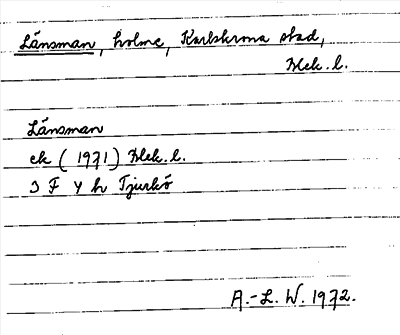 Länsman, holme, Karlskrona stad,
Blek. l.
Länsman
ek (1971) Blek. l.
3 F Y h Tjurkö
A.-L. W. 1972.